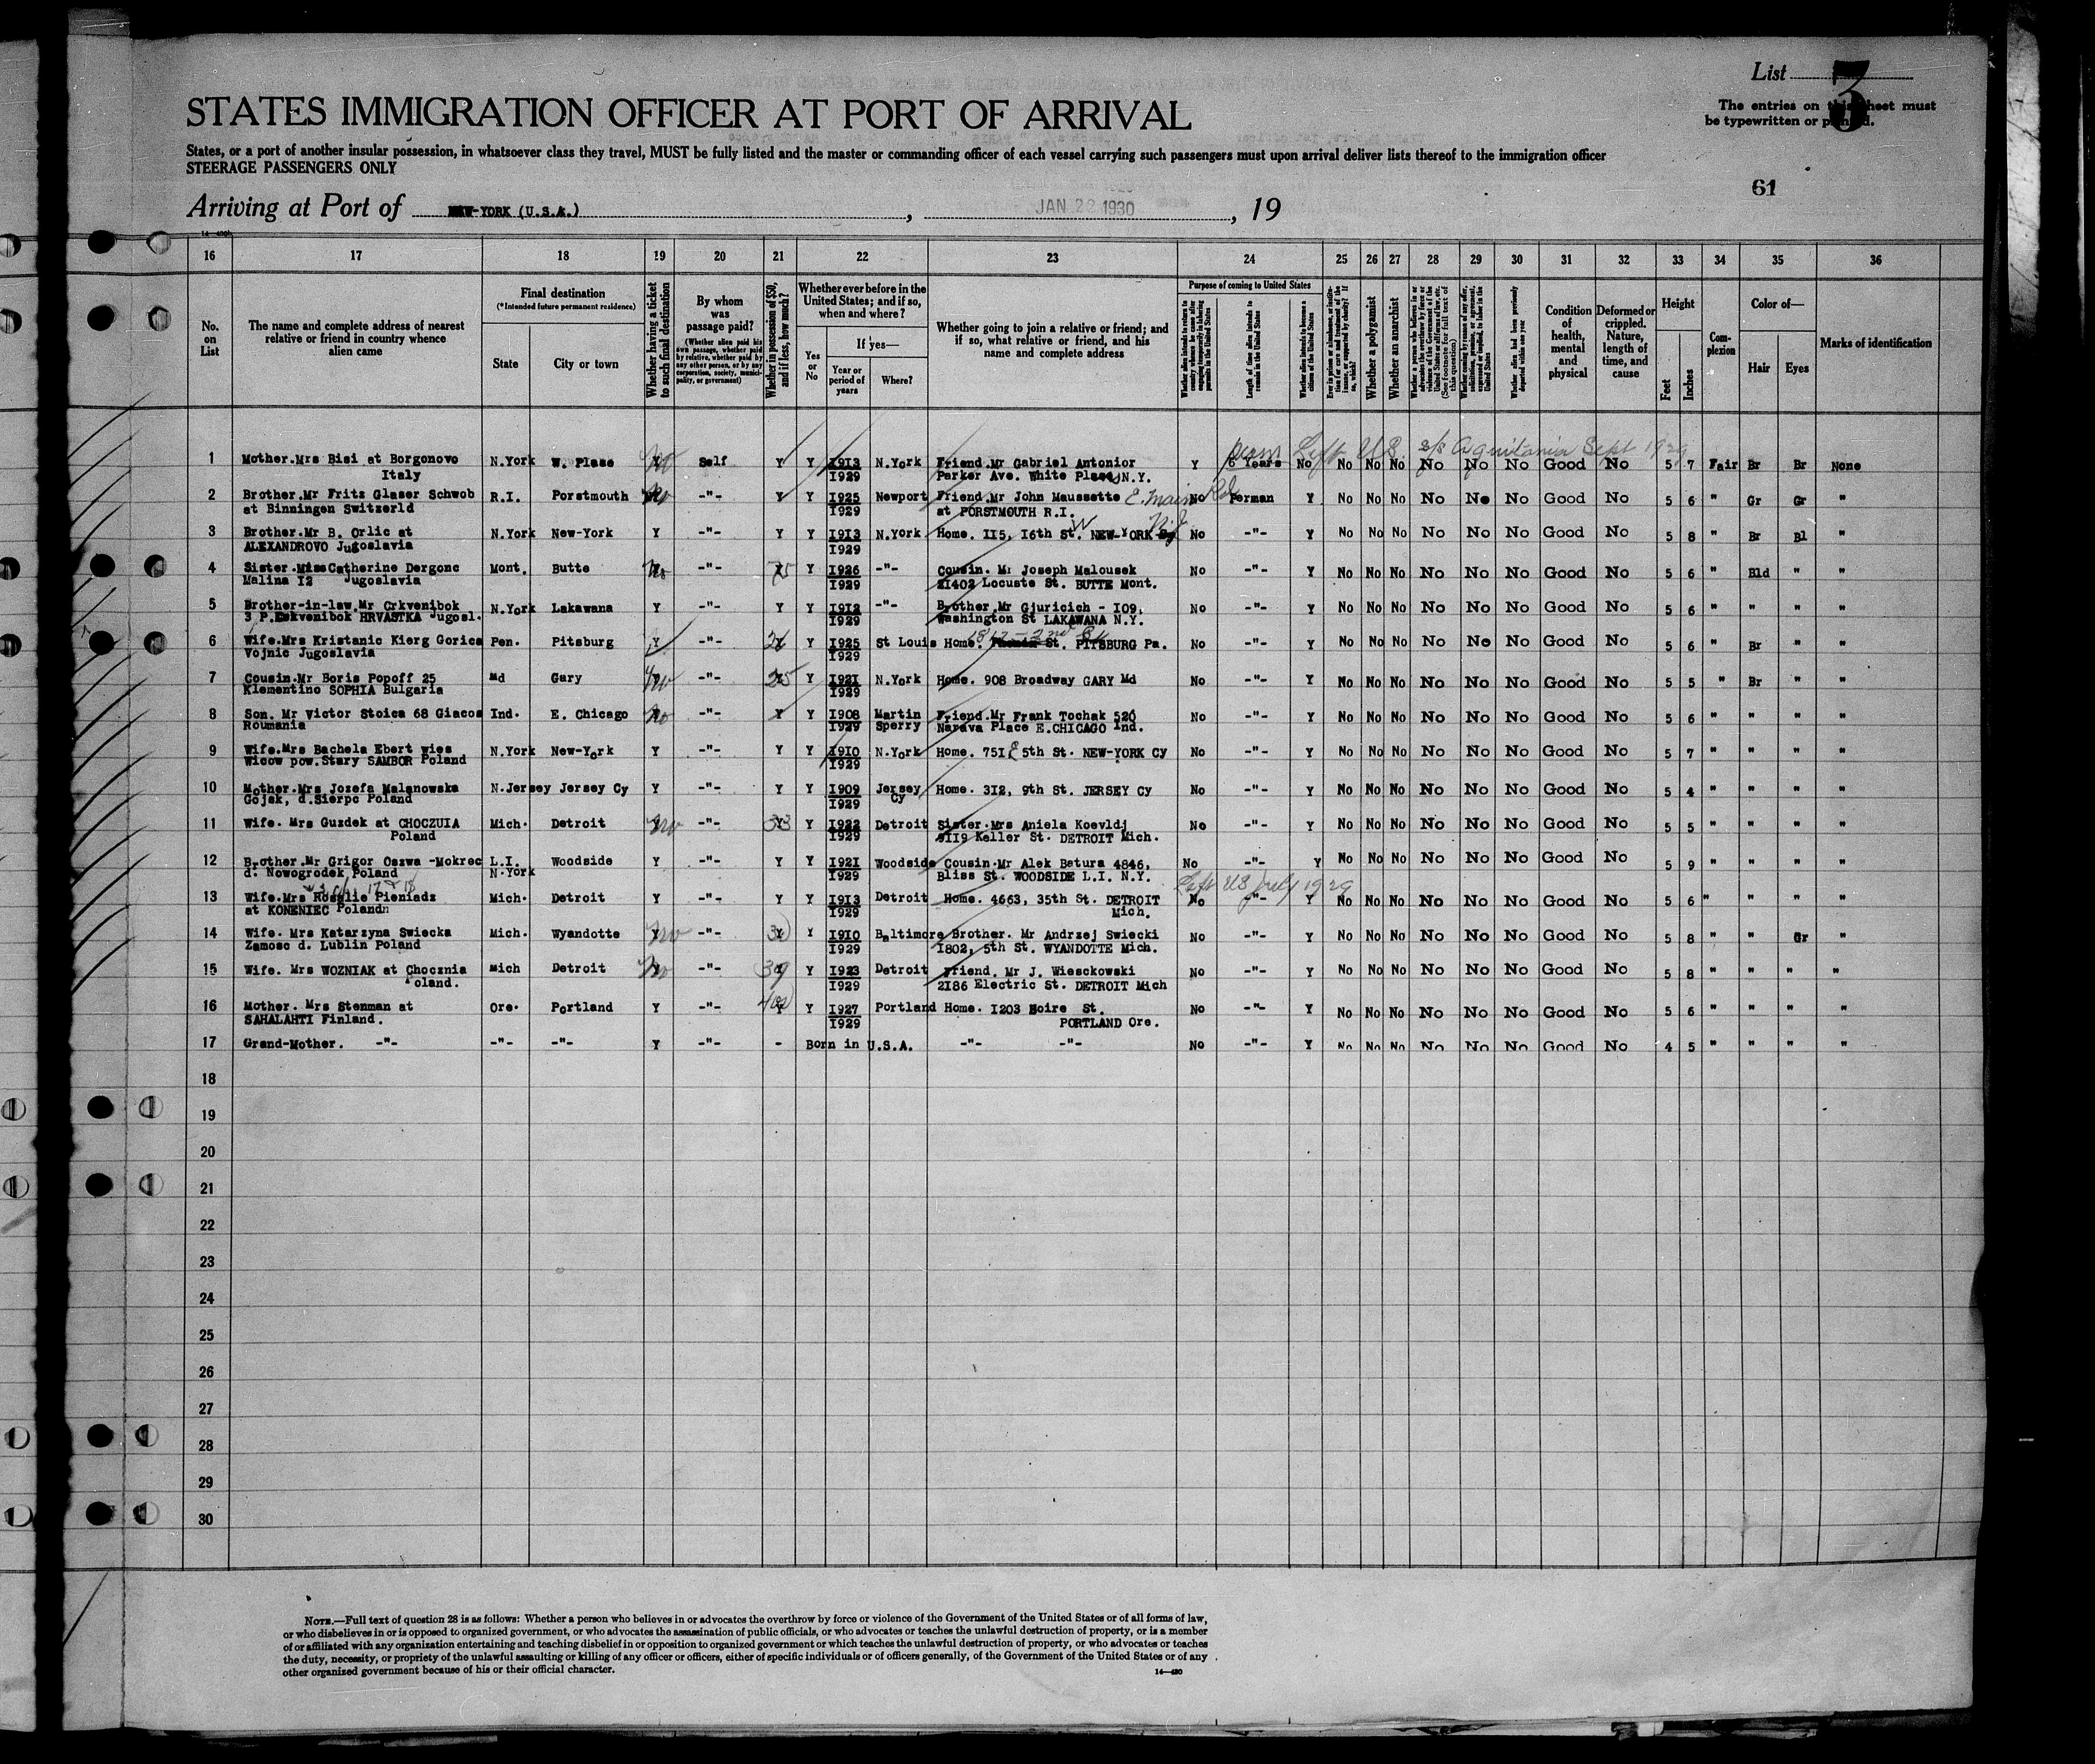 List 3
The entries on this sheet must
be typewritten or printed.
STATES IMMIGRATION OFFICER AT PORT OF ARRIVAL
States, or a port of another insular possession, in whatsoever class they travel, MUST be fully listed and the master or commanding officer of each vessel carrying such passengers must upon arrival deliver lists thereof to the immigration officer
STEERAGE PASSENGERS ONLY
61
Arriving at Port of NEW-YORK (U.S.A.) , JAN 22 1930 , 19
16 17 18 19 20 21 22 23 24 25 26 27 28 29 30 31 32 33 34 35 36
No. on List
The name and complete address of nearest relative or friend in country whence alien came
Final destination
(*Intended future permanent residence)
State
City or town
Whether having a ticket to such final destination
By whom was passage paid?
(Whether alien paid his own passage, whether paid by relative, whether paid by any other person, or by any corporation, society, municipality, or government)
Whether in possession of $50, and if less, how much?
Whether ever before in the United States; and if so, when and where?
Yes or No
If yes—
Year or period of years
Where?
Whether going to join a relative or friend; and if so, what relative or friend, and his name and complete address
Purpose of coming to United States
Length of time alien intends to remain in the United States
Whether alien intends to become a citizen of the United States
Whether a polygamist
Whether an anarchist
Condition of health, mental and physical
Deformed or crippled. Nature, length of time, and cause
Height
Feet
Inches
Complexion
Color of—
Hair
Eyes
Marks of identification
Left U.S. s/s Aquitania Sept 1929
1 Mother.Mrs Bisi at Borgonovo N.York W. Plase Self Y Y 1913 N.York Friend.Mr Gabriel Antonior Y 6 Years No No No No No No No Good No 5 7 Fair Br Br None
Italy 1929 Parker Ave. White Plase N.Y.
2 Brother.Mr Fritz Glaser Schwob R.I. Porstmouth No -"- Y Y 1925 Newport Friend.Mr John Maussette E. Main Rd No Perman Y No No No No No No Good No 5 6 " Gr Gr "
at Binningen Switzerld 1929 at PORSTMOUTH R.I.
3 Brother.Mr B. Orlic at N.York New-York Y -"- Y Y 1913 N.York Home. 115, 16th St. NEW-YORK No -"- Y No No No No No No Good No 5 8 " Br Bl "
ALEXANDROVO Jugoslavia 1929
4 Sister.Miss Catherine Dergonc Mont. Butte No -"- 75 Y 1926 -"- Cousin. Mr Joseph Malousek No -"- Y No No No No No No Good No 5 6 " Bld " "
Malina 12 Jugoslavia 1929 21402 Locuste St. BUTTE Mont.
5 Brother-in-law.Mr Crkvenibok N.York Lakawana Y -"- Y Y 1912 -"- Brother.Mr Gjuricich - 109, No -"- Y No No No No No No Good No 5 6 " " " "
3 P.Eskvenibok HRVASTKA Jugosl. 1929 Washington St LAKAWANA N.Y.
6 Wife.Mrs Kristanic Kierg Gorica Pen. Pitsburg Y -"- Y 1925 St Louis Home. 1817 - 2nd St. PITSBURG Pa. No -"- Y No No No No No No Good No 5 6 " Br " "
Vojnic Jugoslavia 1929
7 Cousin.Mr Boris Popoff 25 Md Gary No -"- 25 Y 1921 N.York Home. 908 Broadway GARY Md No -"- Y No No No No No No Good No 5 5 " Br " "
Klementino SOPHIA Bulgaria 1929
8 Son. Mr Victor Stoica 68 Giacos Ind. E. Chicago No -"- Y Y 1908 Martin Friend.Mr Frank Tochak 520 No -"- Y No No No No No No Good No 5 6 " " " "
Roumania 1929 Sperry Narava Place E.CHICAGO Ind.
9 Wife.Mrs Bachela Ebert wies N.York New-York Y -"- Y Y 1910 N.York Home. 751 E 5th St. NEW-YORK Cy No -"- Y No No No No No No Good No 5 7 " " " "
Wicow pow.Stary SAMBOR Poland 1929
10 Mother.Mrs Jozefa Malanowska N.Jersey Jersey Cy Y -"- Y Y 1909 Jersey Home. 312, 9th St. JERSEY Cy No -"- Y No No No No No No Good No 5 4 " " " "
Gojsk, d.Sierpc Poland 1929 Cy
11 Wife. Mrs Guzdek at CHOCZUIA Mich. Detroit No -"- 33 Y 1922 Detroit Sister.Mrs Aniela Koevldj No -"- Y No No No No No No Good No 5 5 " " " "
Poland 1929 9119 Keller St. DETROIT Mich.
12 Brother.Mr Grigor Oszwa -Mokrec L.I. Woodside Y -"- Y Y 1921 Woodside Cousin.Mr Alek Batura 4846, No -"- Y No No No No No No Good No 5 9 " " " "
d. Nowogrodek Poland N.York 1929 Bliss St. WOODSIDE L.I. N.Y.
Left US July 1929
13 Wife.Mrs Rosalie Pieniadz Mich. Detroit Y -"- Y Y 1913 Detroit Home. 4663, 35th St. DETROIT No -"- Y No No No No No No Good No 5 6 " " " "
at KONENIEC Poland 1929 Mich.
14 Wife. Mrs Katarzyna Swiecka Mich. Wyandotte No -"- 30 Y 1910 Baltimore Brother. Mr Andrzej Swiecki No -"- Y No No No No No No Good No 5 8 " " Gr "
Zamosc d. Lublin Poland 1929 1802, 5th St. WYANDOTTE Mich.
15 Wife. Mrs WOZNIAK at Chocznia Mich Detroit No -"- 39 Y 1923 Detroit Friend. Mr J. Wiesckowski No -"- Y No No No No No No Good No 5 8 " " " "
Poland. 1929 2186 Electric St. DETROIT Mich
16 Mother. Mrs Stenman at Ore. Portland Y -"- 400 Y 1927 Portland Home. 1203 Noire St. No -"- Y No No No No No No Good No 5 6 " " " "
SAHALAHTI Finland. 1929 PORTLAND Ore.
17 Grand-Mother. -"- -"- -"- Y -"- - Born in U.S.A. -"- -"- No -"- Y No No No No No No Good No 4 5 " " " "
18
19
20
21
22
23
24
25
26
27
28
29
30
NOTE.—Full text of question 28 is as follows: Whether a person who believes in or advocates the overthrow by force or violence of the Government of the United States or of all forms of law,
or who disbelieves in or is opposed to organized government, or who advocates the assassination of public officials, or who advocates or teaches the unlawful destruction of property, or is a member
of or affiliated with any organization entertaining and teaching disbelief in or opposition to organized government or which teaches the unlawful destruction of property, or who advocates or teaches
the duty, necessity, or propriety of the unlawful assaulting or killing of any officer or officers, either of specific individuals or of officers generally, of the Government of the United States or of any
other organized government because of his or their official character.
14—430